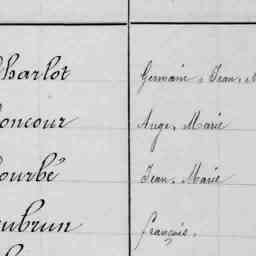 Charlot Germain, Jean, M
oncour Ange, Marie
ourbé Jean, Marie
ubrun François.